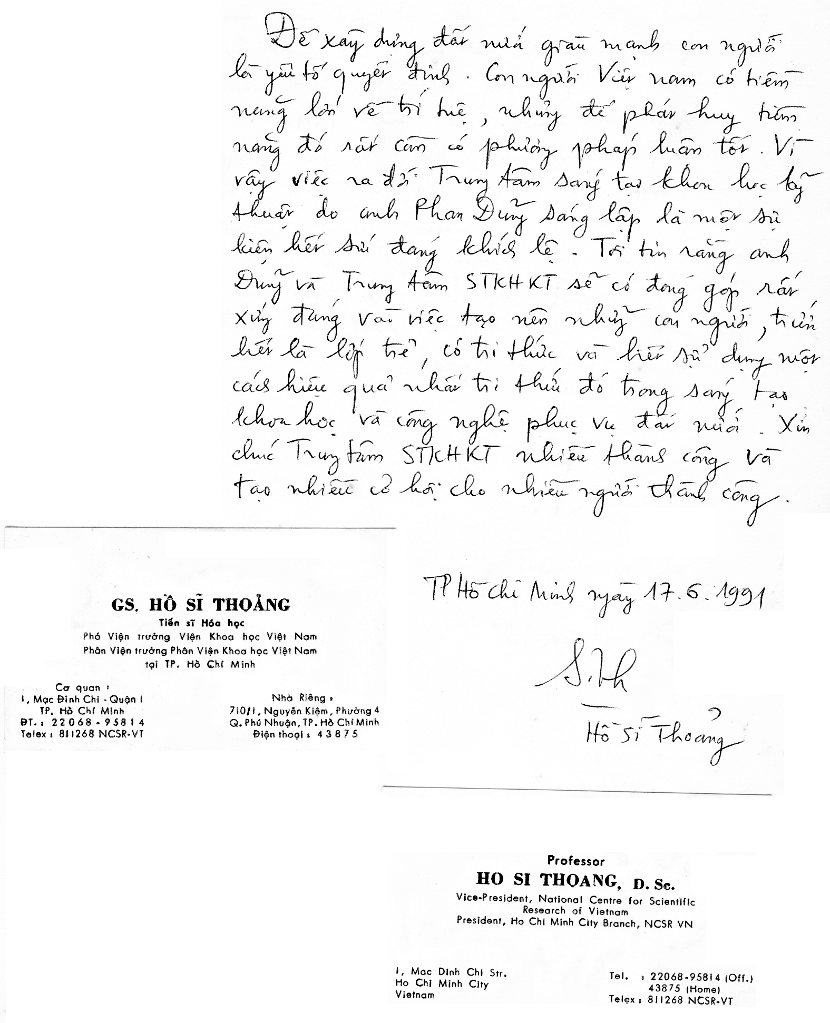 Để xây dựng đất nước giàu mạnh con người
là yếu tố quyết định. Con người Việt nam có tiềm
năng lớn về trí tuệ, nhưng để phát huy tiềm
năng đó rất cần có phương pháp luận tốt. Vì
vậy việc ra đời Trung tâm sáng tạo khoa học kỹ
thuật do anh Phan Dũng sáng lập là một sự
kiện hết sức đáng khích lệ. Tôi tin rằng anh
Dũng và Trung tâm STKHKT sẽ có đóng góp rất
xứng đáng vào việc tạo nên những con người, trước
hết là lớp trẻ, có tri thức và biết sử dụng một
cách hiệu quả nhất tri thức đó trong sáng tạo
khoa học và công nghệ phục vụ đất nước. Xin
chúc Trung tâm STKHKT nhiều thành công và
tạo nhiều cơ hội cho nhiều người thành công.
TP Hồ Chí Minh ngày 17.6.1991
Hồ Sĩ Thoảng
GS. HỒ SĨ THOẢNG
Tiến sĩ Hóa học
Phó Viện trưởng Viện Khoa học Việt Nam
Phân Viện trưởng Phân Viện Khoa học Việt Nam
tại TP. Hồ Chí Minh
Cơ quan :
1, Mạc Đĩnh Chi - Quận 1
TP. Hồ Chí Minh
ĐT. : 22068 - 95814
Telex : 811268 NCSR-VT
Nhà Riêng :
710/1, Nguyễn Kiệm, Phường 4
Q. Phú Nhuận, TP. Hồ Chí Minh
Điện thoại : 43875
Professor
HO SI THOANG, D. Sc.
Vice-President, National Centre for Scientific
Research of Vietnam
President, Ho Chi Minh City Branch, NCSR VN
1, Mac Dinh Chi Str.
Ho Chi Minh City
Vietnam
Tel. : 22068-95814 (Off.)
43875 (Home)
Telex : 811268 NCSR-VT